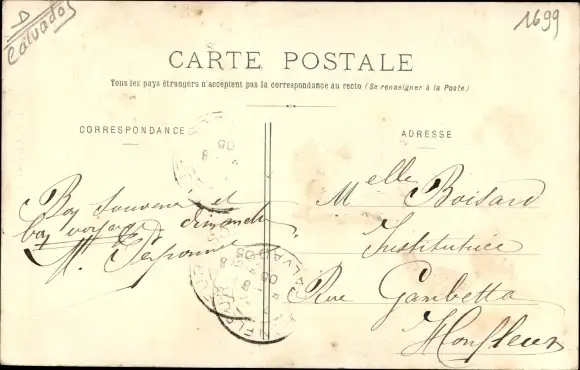 D
Calvados
1699
CARTE POSTALE
Tous les pays étrangers n'acceptent pas la correspondance au recto (Se renseigner à la Poste)
CORRESPONDANCE
ADRESSE
Bon souvenir et
bon voyage dimanche
M.
Melle Boisard
Institutrice
Rue Gambetta
Honfleur
HONFLEUR
CALVADOS